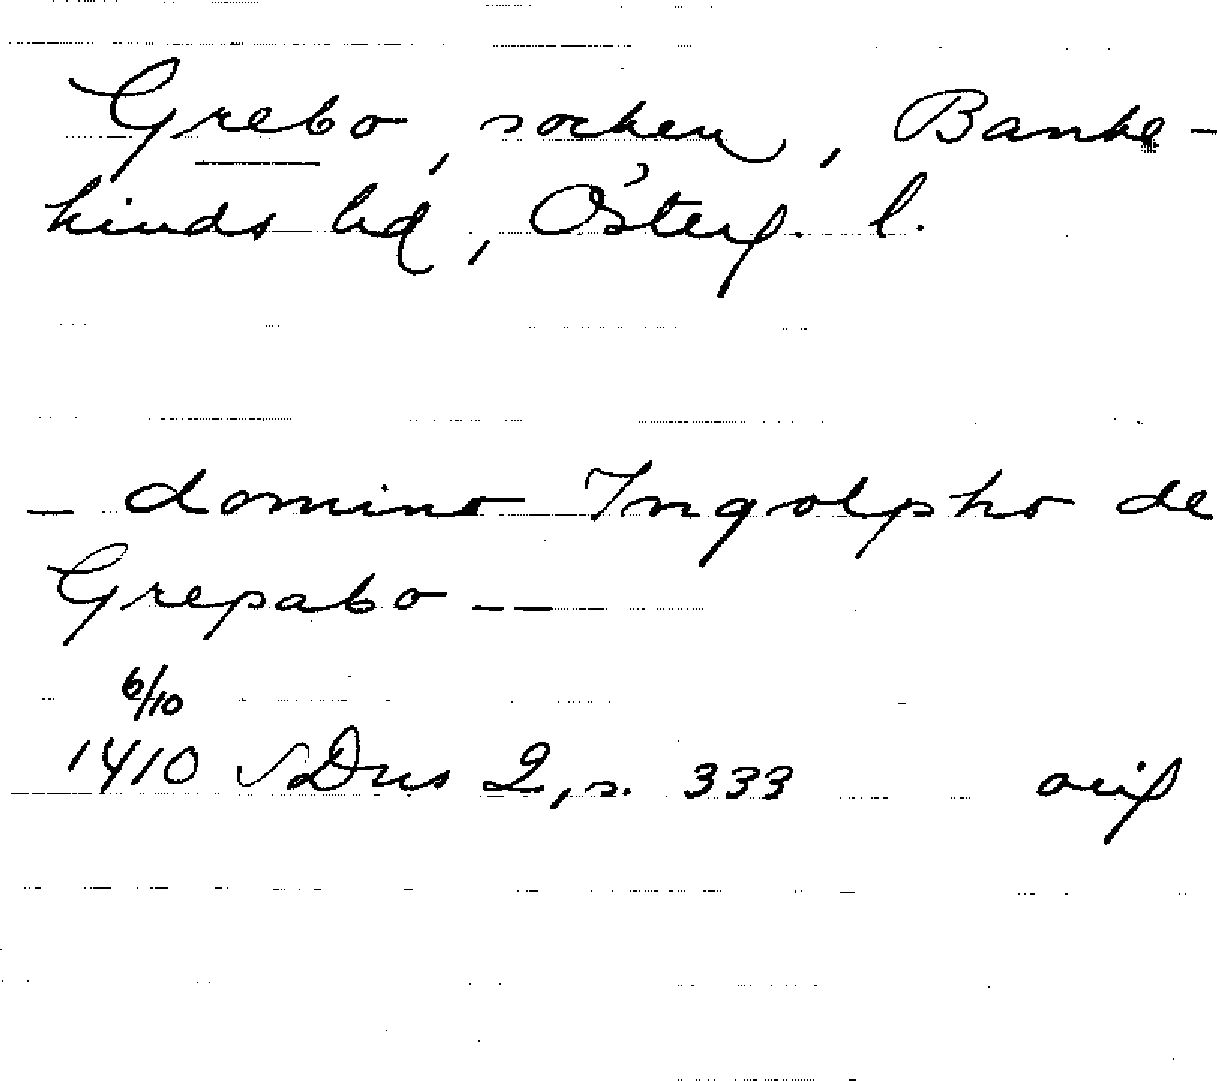 Grebo, socken, Banke-
kinds hd, Österg. l.
– domino Ingolpho de
Grepabo – –
6/10
1410 SDns 2, s. 333 orig